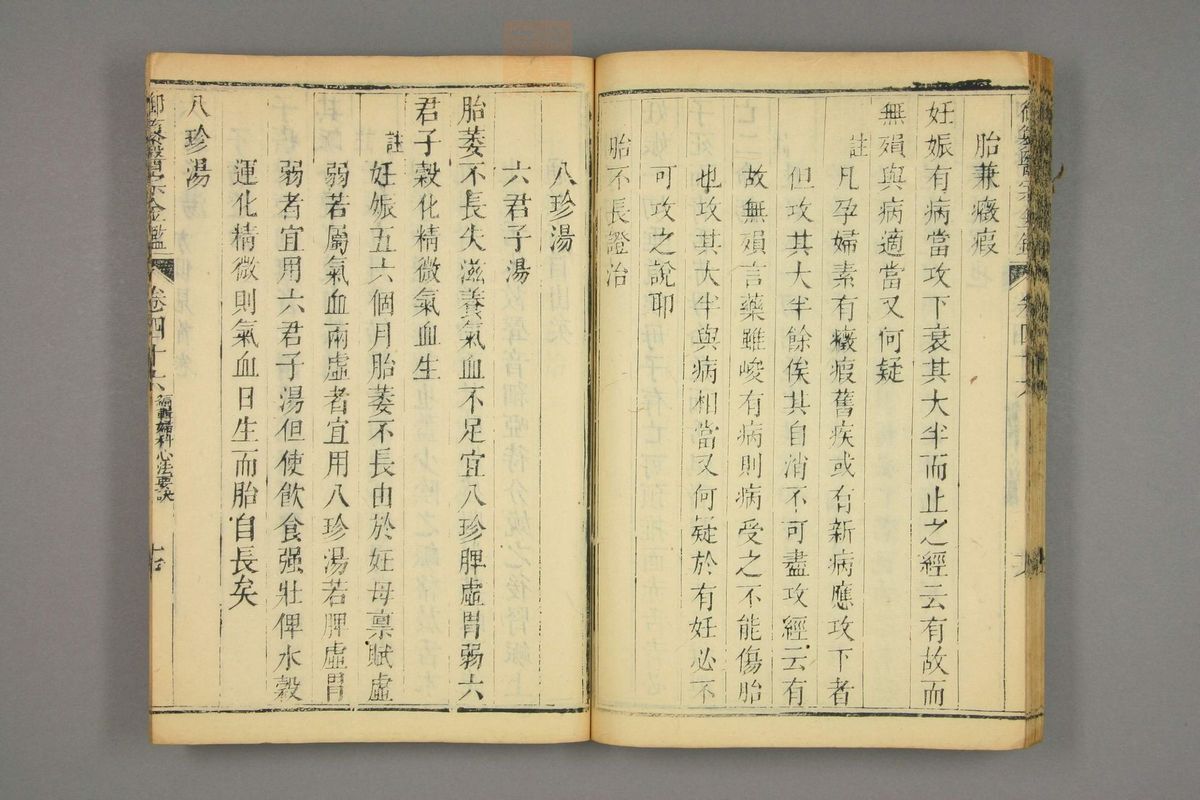 胎兼癥瘕
妊娠有病當攻下衰其大半而止之經云有故而
無殞與病適當又何疑
註凡孕婦素有癥瘕舊疾或有新病應攻下者
但攻其大半餘俟其自消不可盡攻經云有
故無殞言藥雖峻有病則病受之不能傷胎
也攻其大半與病相當又何疑於有妊必不
可攻之說耶
胎不長證治
八珍湯
六君子湯
胎萎不長失滋養氣血不足宜八珍脾虛胃弱六
君子穀化精微氣血生
註妊娠五六個月胎萎不長由於妊母禀賦虛
弱若屬氣血兩虛者宜用八珍湯若脾虛胃
弱者宜用六君子湯但使飲食强壯俾水穀
運化精微則氣血日生而胎自長矣
八珍湯
御纂醫宗金鑑 卷四十六 編輯婦科心法要訣